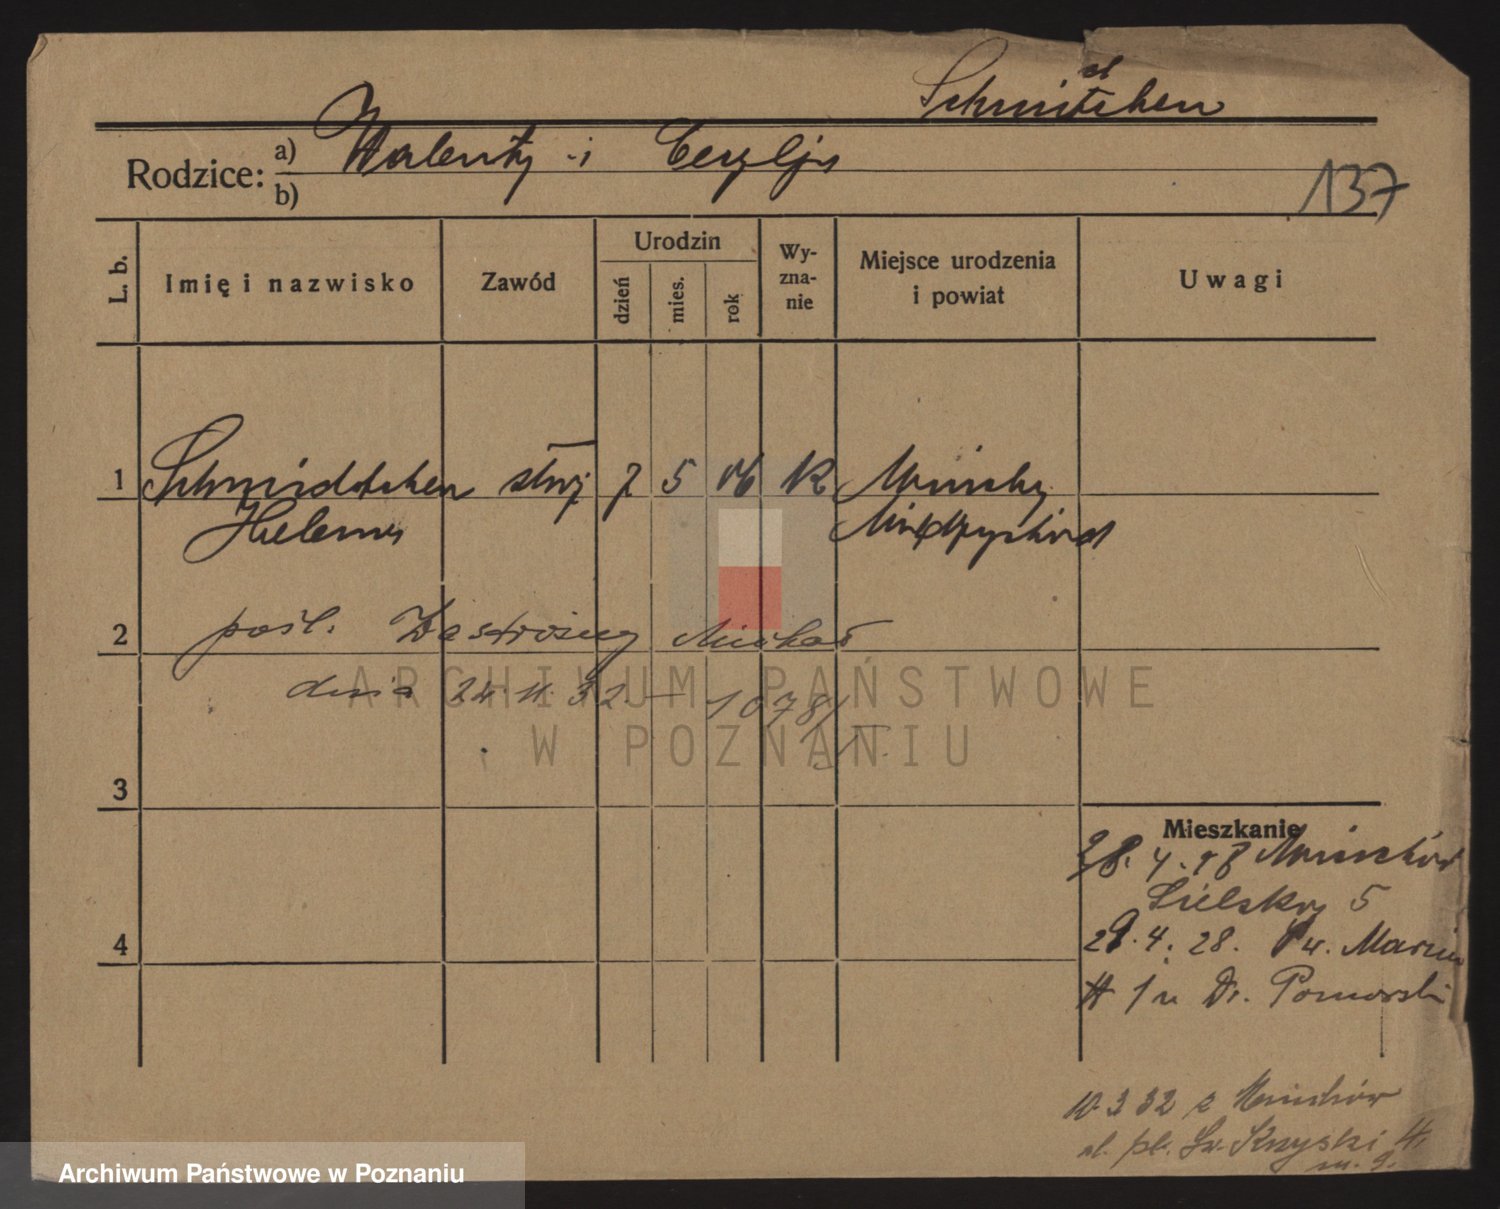 Schmidtchen
Rodzice: a) Walenty i Cecylja
b)
137
L. b.
Imię i nazwisko
Zawód
Urodzin
dzień
mies.
rok
Wy-
zna-
nie
Miejsce urodzenia
i powiat
Uwagi
1 Schmidtchen służ 7 5 06 K Mnichy
Helena Międzychód
2 pośl. Michał
dnia 24.11.32. — 1078/
3
4
Mieszkanie
28.4.28 Mnichów
5
29.4.28. Św. Marcin
1 u Dr. Pomorski
10 3 32 z Mnichów
pl. Św. Krzyski 4
m. 9.
ARCHIWUM PAŃSTWOWE
W POZNANIU
Archiwum Państwowe w Poznaniu